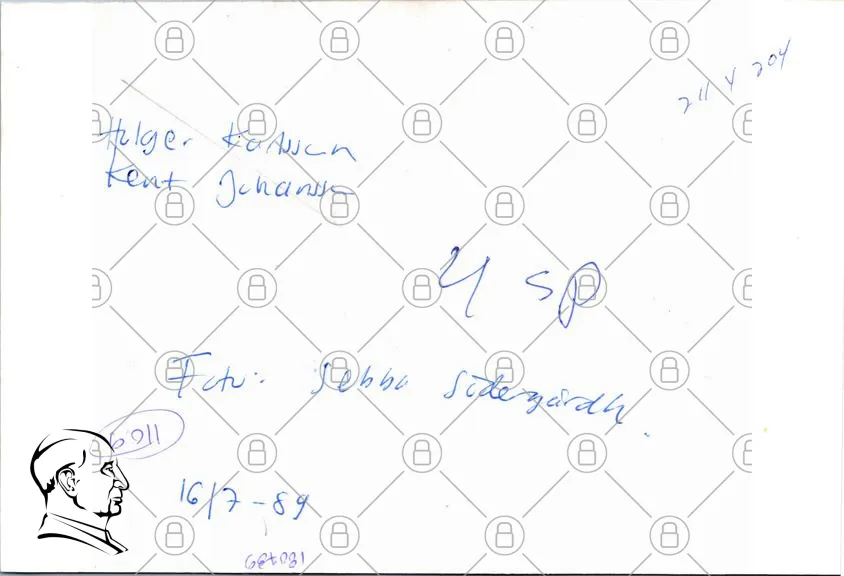 211 x 204
Holger Karlsson
Kent Johansson
4 sp
Foto: Sebbe Södergårdh
1169
16/7-89
180789